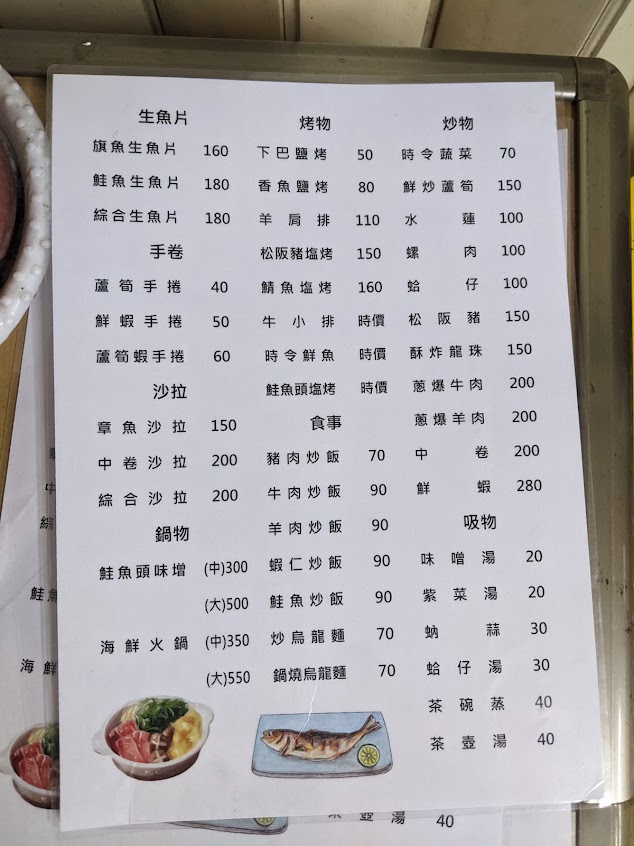 生魚片
旗魚生魚片 160
鮭魚生魚片 180
綜合生魚片 180
手卷
蘆筍手捲 40
鮮蝦手捲 50
蘆筍蝦手捲 60
沙拉
章魚沙拉 150
中卷沙拉 200
綜合沙拉 200
鍋物
鮭魚頭味增 (中)300
(大)500
海鮮火鍋 (中)350
(大)550
烤物
下巴鹽烤 50
香魚鹽烤 80
羊肩排 110
松阪豬塩烤 150
鯖魚塩烤 160
牛小排 時價
時令鮮魚 時價
鮭魚頭塩烤 時價
食事
豬肉炒飯 70
牛肉炒飯 90
羊肉炒飯 90
蝦仁炒飯 90
鮭魚炒飯 90
炒烏龍麵 70
鍋燒烏龍麵 70
炒物
時令蔬菜 70
鮮炒蘆筍 150
水蓮 100
螺肉 100
蛤仔 100
松阪豬 150
酥炸龍珠 150
蔥爆牛肉 200
蔥爆羊肉 200
中卷 200
鮮蝦 280
吸物
味噌湯 20
紫菜湯 20
蚋蒜 30
蛤仔湯 30
茶碗蒸 40
茶壺湯 40
鮭魚
海鮮
茶壺湯 40